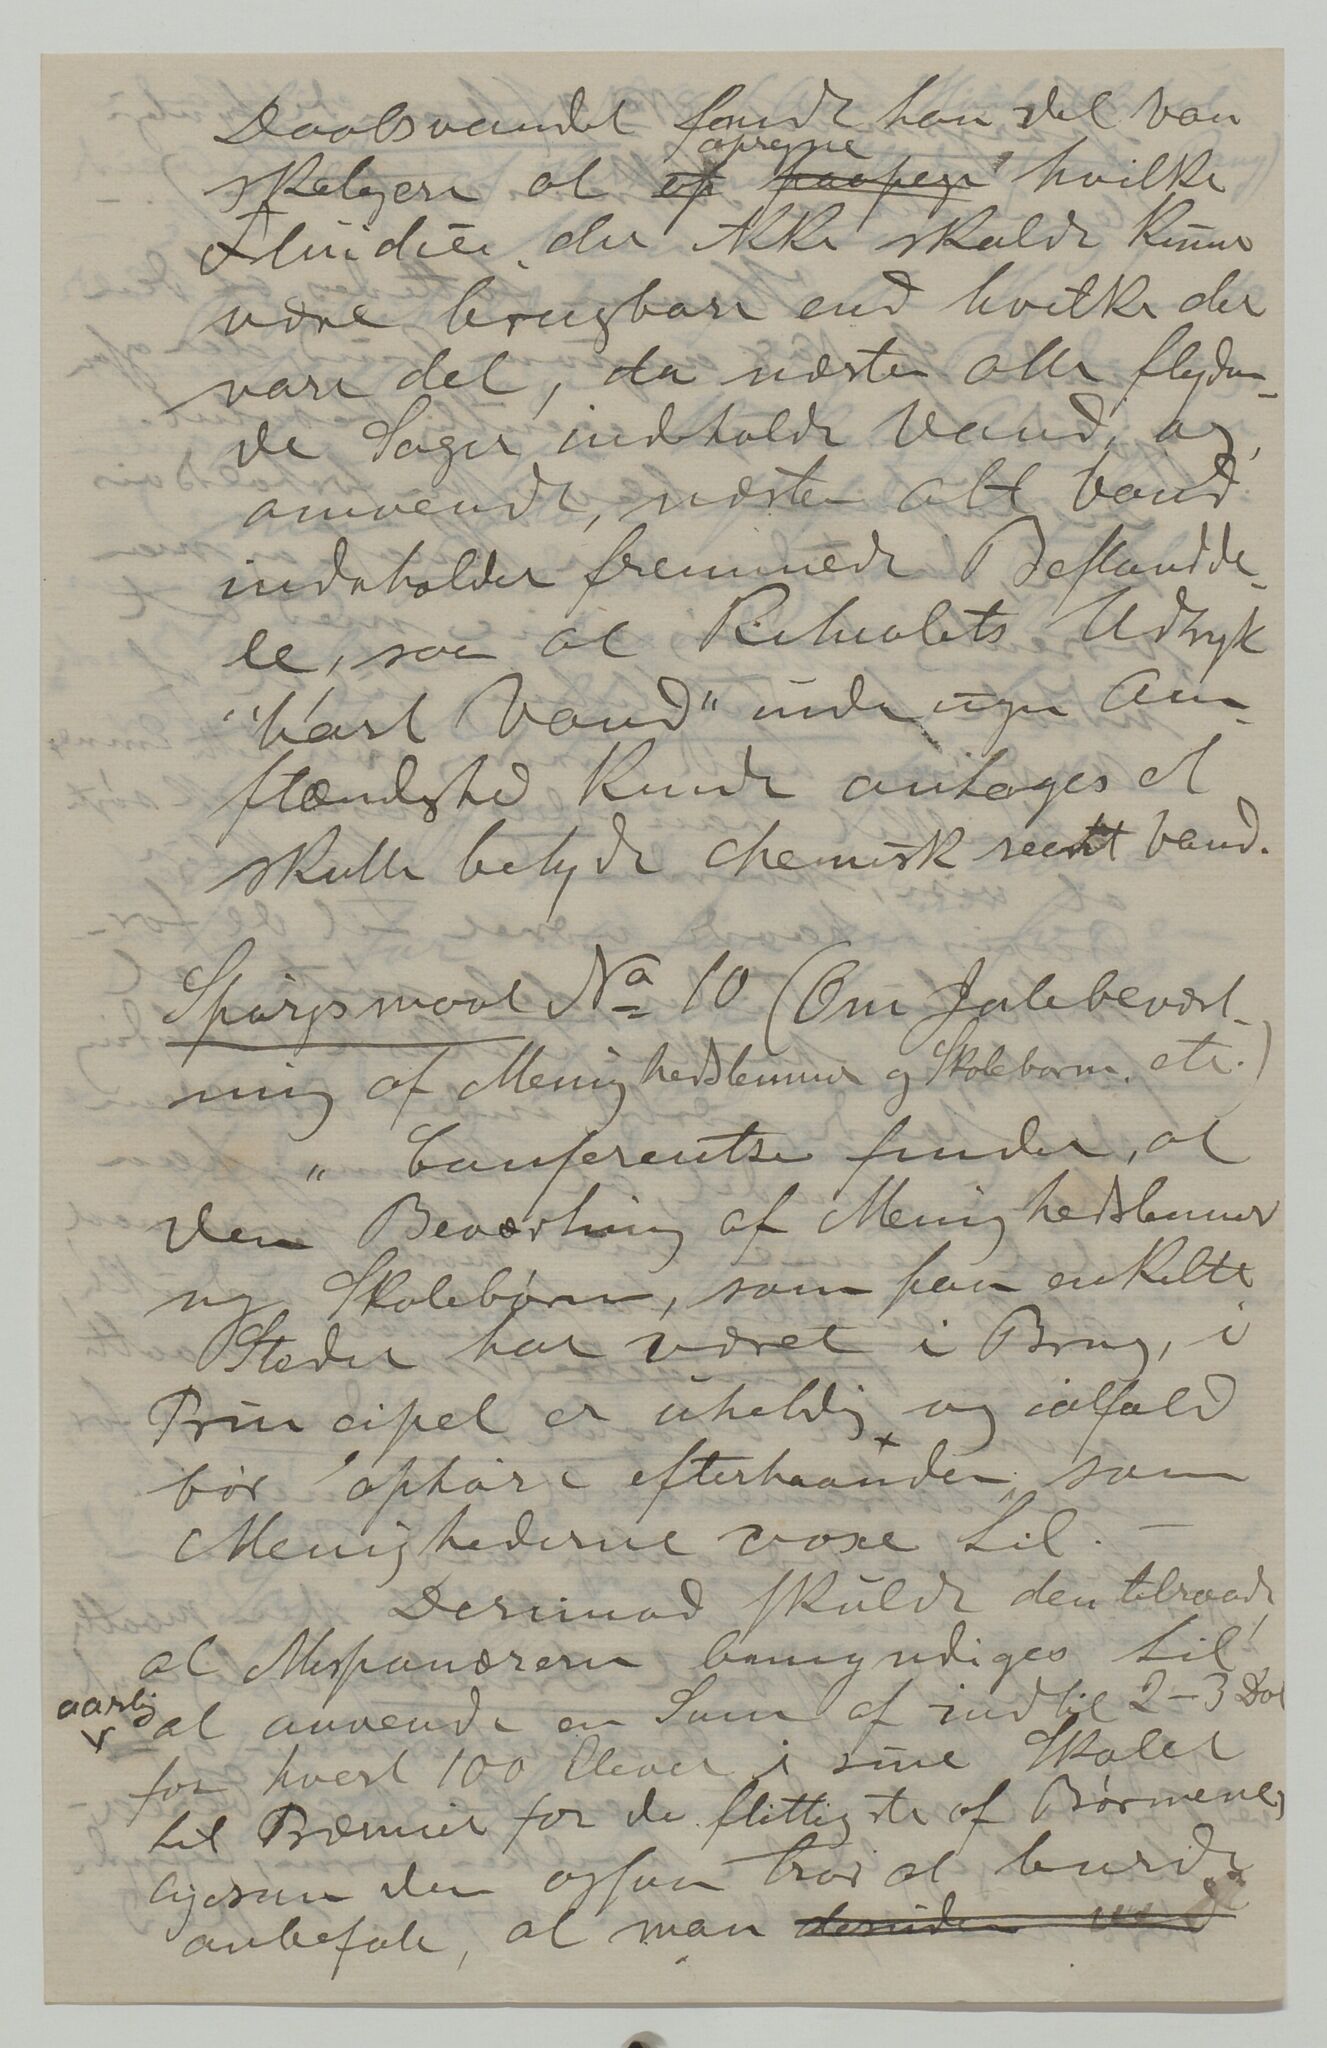 Daabsvandet fandt han det van
skeligere at <s>op</s> <s>paapege</s> opregne hvilke
Fluidier, der ikke skulde kunne
være brugbare end hvilke der
vare det, da næsten alle flyden-
de Sager indeholde Vand, og,
omvendt, næsten alt Vand
indeholder fremmede Bestandde-
le, saa at Ritualets Udtryk
"bart Vand" under ingen Om-
stændighed kunde antages at
skulle betyde chemisk reent Vand.
Spörgsmaal No 10 (Om Julebevært-
ning af Menighedslemmer og Skolebørn. etc.)
" Conferentsen finder, at
den Beværtning af Menighedslemmer
og Skolebörn, som paa enkelte
Steder har været i Brug, i
Principet er uheldig og ialfald
bör ophöre efterhaanden som
Menighederne voxe til. —
Derimod skulde den tilraade,
at Missionæren bemyndiges til
aarlig
at anvende en Sum af indtil 2-3 Dol
for hvert 100 Elever i sine Skoler
til Præmier for de flittigste af Børnene,
ligesom den ogsaa tror at burde
anbefale, at man <s>desuden</s> <s>ved</s>